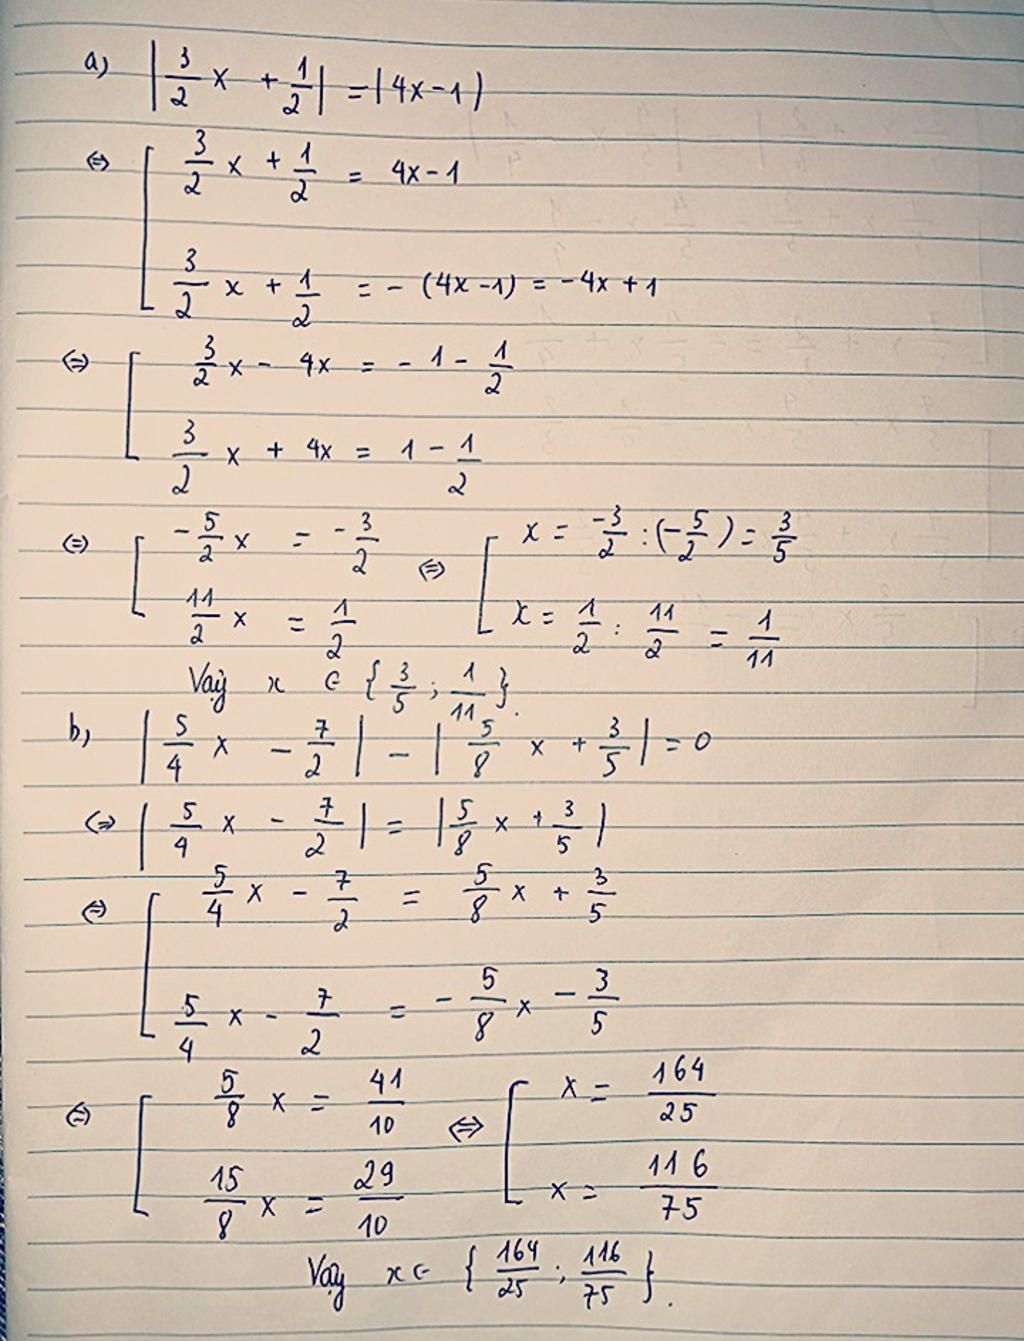 a) |3/2 x + 1/2| = |4x-1)
⇔ [ 3/2 x + 1/2 = 4x-1
3/2 x + 1/2 = - (4x-1) = -4x+1
⇔ [ 3/2 x - 4x = -1 - 1/2
3/2 x + 4x = 1 - 1/2
⇔ [ -5/2 x = -3/2 ⇔ [ x = -3/2 : (-5/2) = 3/5
11/2 x = 1/2 x = 1/2 : 11/2 = 1/11
Vậy x ∈ {3/5 ; 1/11}.
b) |5/4 x - 7/2| - |5/8 x + 3/5| = 0
⇔ |5/4 x - 7/2| = |5/8 x + 3/5|
⇔ [ 5/4 x - 7/2 = 5/8 x + 3/5
5/4 x - 7/2 = -5/8 x - 3/5
⇔ [ 5/8 x = 41/10 ⇔ [ x = 164/25
15/8 x = 29/10 x = 116/75
Vậy x ∈ {164/25 ; 116/75}.